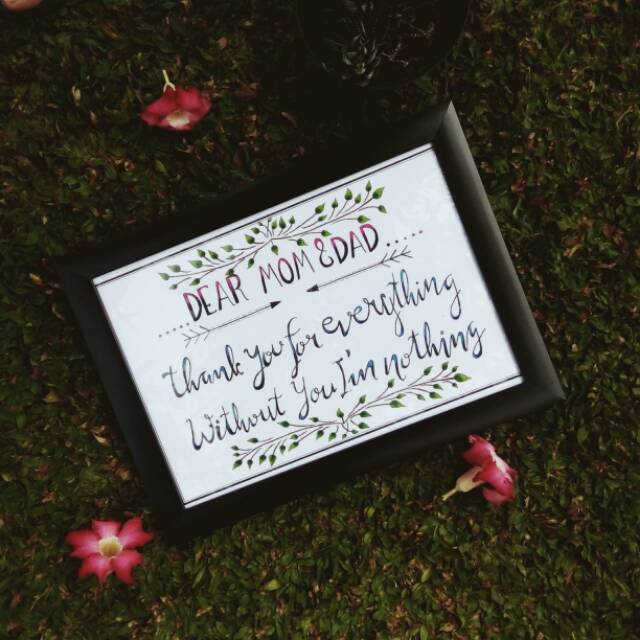 DEAR MOM & DAD.....
Thank you for everything
Without You I'm nothing